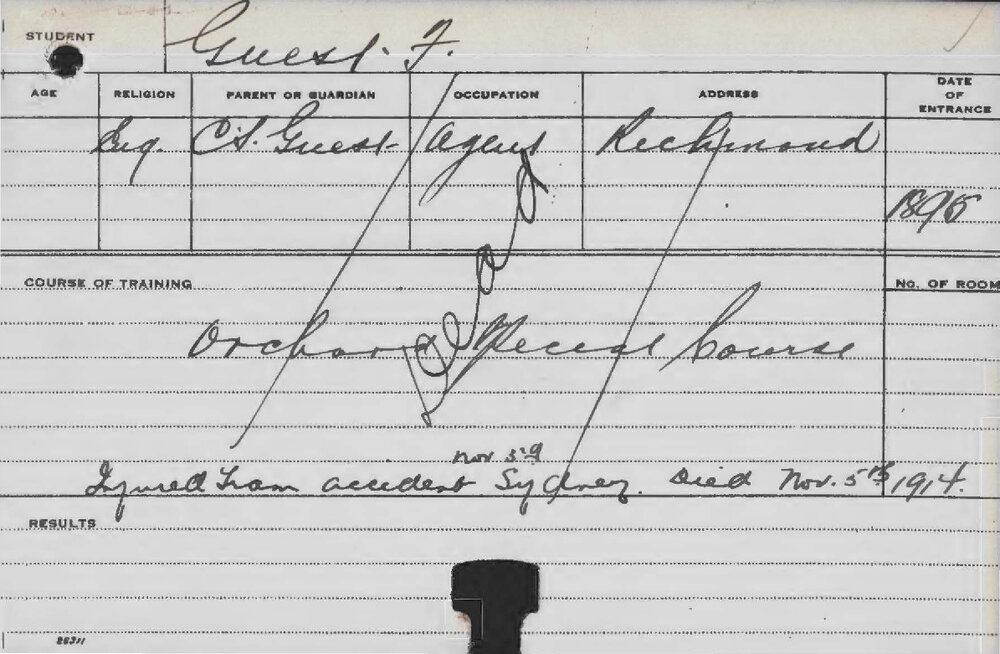 STUDENT Guest. F.
AGE RELIGION PARENT OR GUARDIAN OCCUPATION ADDRESS DATE OF ENTRANCE
Eng. C.S. Guest Agent Richmond
1895
Dead
COURSE OF TRAINING No. OF ROOM
Orchard Special Course
Nov 3rd
Injured Tram accident Sydney. Died Nov. 5th 1914.
RESULTS